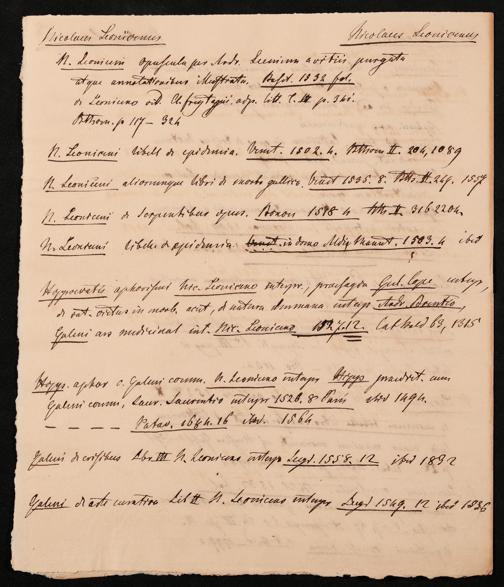 Nicolaus Leonicenus Nicolaus Leonicenus
N. Leoniceni opuscula per Andr. Leenium a vitiis purgata
atque annotationibus illustrata. Basil. 1532 fol.
de Leoniceno vid. litt. p. 341.
p 117 – 324
N. Leoniceni libell. de epidemia. Venet. 1502. 4. II. 204, 1089
N. Leoniceni aliorumque libri de morbo gallico. Venet 1535. 8. II. 249. 1557
N. Leoniceni de Serpentibus opus. Bonon 1518 4 II. 316 2204.
N. Leoniceni libell. de epidemia in domo Aldi Manut. 1503. 4 ibid
Hippocratis aphorismi Nic. Leoniceno interpr., praesagia Gul. Copo interpr,
de rat. victus in morb. acut, de natura humana interpr Andr. Brentio,
Galeni ars medicinal int. Nic. Leoniceno 12. 63, 1315
Hipp. aphor. c. Galeni comm. N. Leoniceno interpr Hipp praedict. cum
Galeni comm, Laur. Laurentio interpr 1526. 8 Paris ibid 1494.
– – – – – Patav. 16 ibid. 1564
Galeni de crisibus Libr. III N. Leoniceno interpr Lugd. 1558. 12 ibid 1832
Galeni de arte curativa Lib II N. Leoniceno interpr. Lugd 1549. 12 ibid 1836